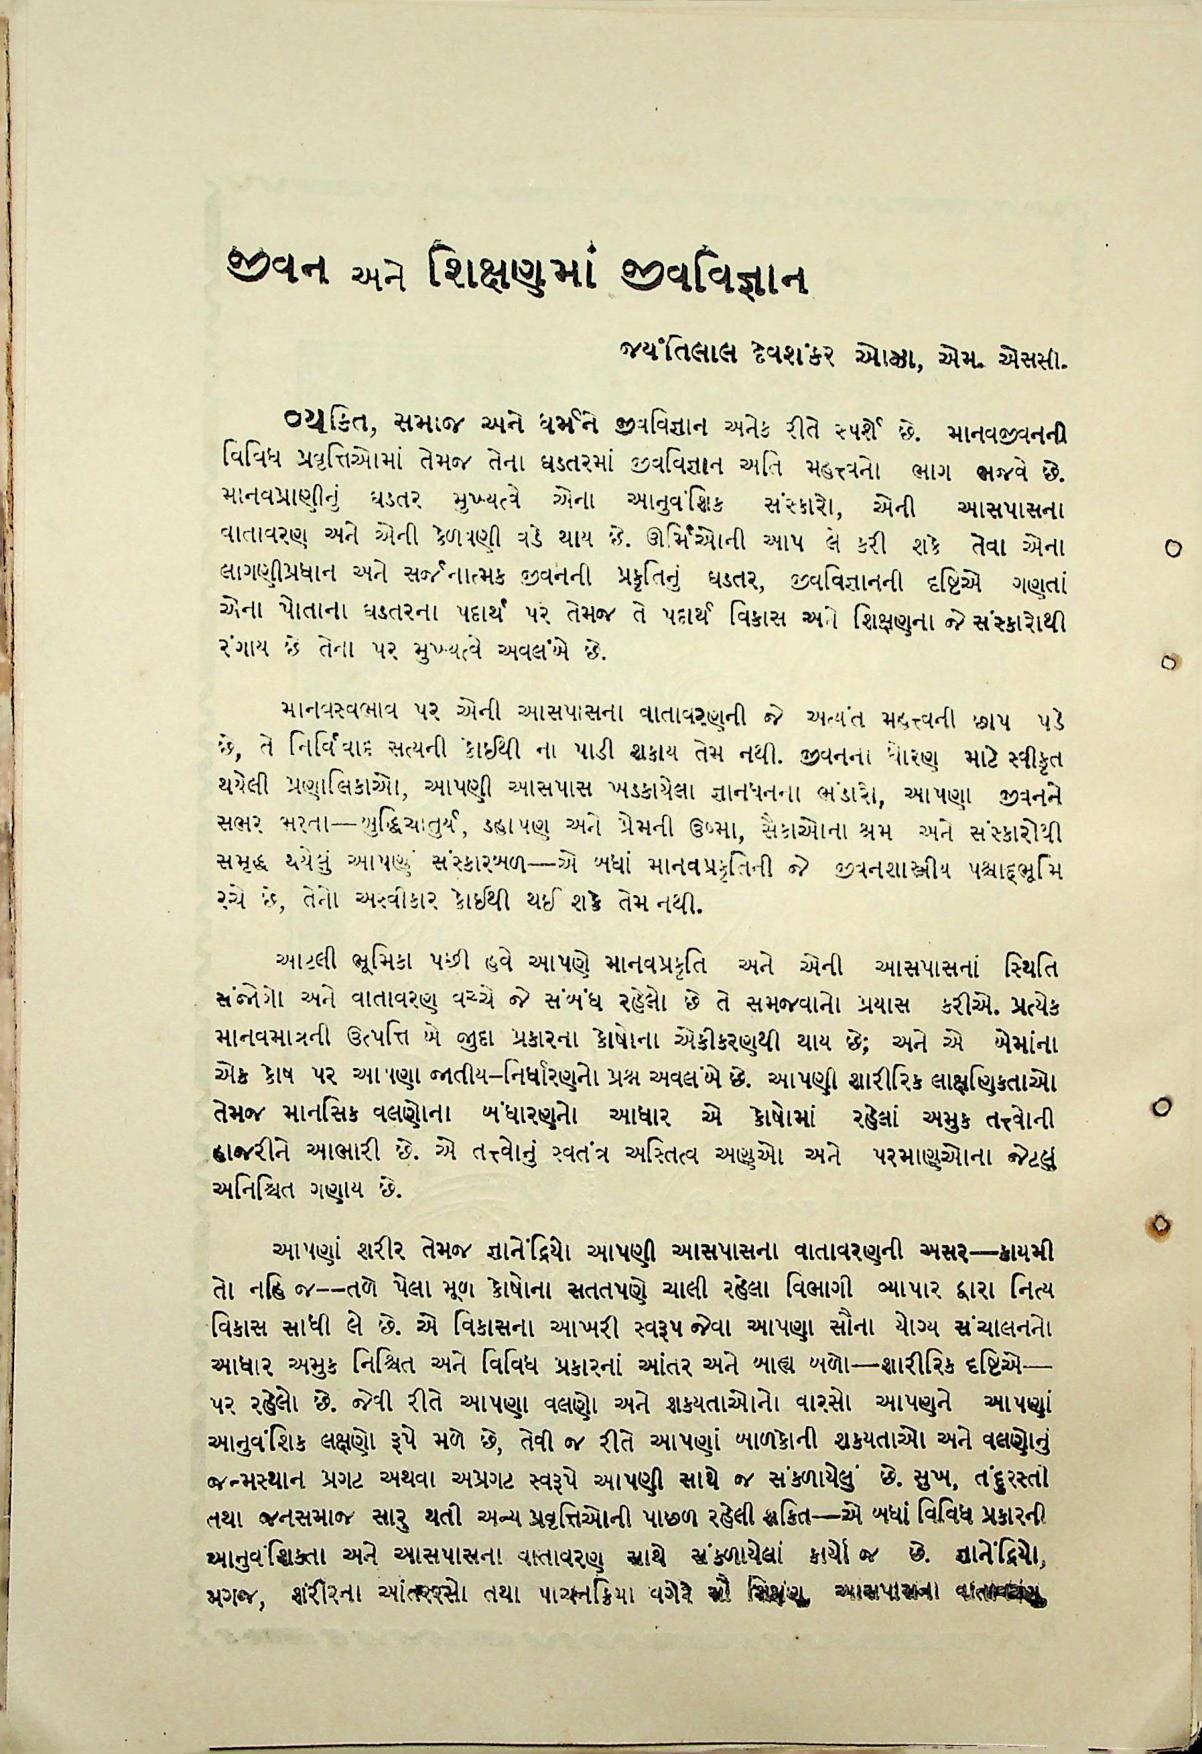 જીવન અને શિક્ષણમાં જીવવિજ્ઞાન
જયંતિલાલ દેવશંકર ઓઝા, એમ. એસસી.
વ્યકિત, સમાજ અને ધર્મને જીવવિજ્ઞાન અનેક રીતે સ્પર્શે છે. માનવજીવનની
વિવિધ પ્રવૃત્તિઓમાં તેમજ તેના ઘડતરમાં જીવવિજ્ઞાન અતિ મહત્ત્વનો ભાગ ભજવે છે.
માનવપ્રાણીનું ઘડતર મુખ્યત્વે એના આનુવંશિક સંસ્કારો, એની આસપાસના
વાતાવરણ અને એની કેળવણી વડે થાય છે. ઊર્મિઓની આપ લે કરી શકે તેવા એના
લાગણીપ્રધાન અને સર્જનાત્મક જીવનની પ્રકૃતિનું ઘડતર, જીવવિજ્ઞાનની દષ્ટિએ ગણતાં
એના પોતાના ઘડતરના પદાર્થ પર તેમજ તે પદાર્થ વિકાસ અને શિક્ષણના જે સંસ્કારોથી
રંગાય છે તેના પર મુખ્યત્વે અવલંબે છે.
માનવસ્વભાવ પર એની આસપાસના વાતાવરણની જે અત્યંત મહત્ત્વની છાપ પડે
છે, તે નિર્વિવાદ સત્યની કોઈથી ના પાડી શકાય તેમ નથી. જીવનના ધોરણ માટે સ્વીકૃત
થયેલી પ્રણાલિકાઓ, આપણી આસપાસ ખડકાયેલા જ્ઞાનધનના ભંડારો, આપણા જીવનને
સભર ભરતા—બુદ્ધિચાતુર્ય, ડહાપણ અને પ્રેમની ઉષ્મા, સૈકાઓના શ્રમ અને સંસ્કારોથી
સમૃદ્ધ થયેલું આપણું સંસ્કારબળ—એ બધાં માનવપ્રકૃતિની જે જીવનશાસ્ત્રીય પશ્ચાદ્‌ભૂમિ
રચે છે, તેનો અસ્વીકાર કોઈથી થઈ શકે તેમ નથી.
આટલી ભૂમિકા પછી હવે આપણે માનવપ્રકૃતિ અને એની આસપાસનાં સ્થિતિ
સંજોગો અને વાતાવરણ વચ્ચે જે સંબંધ રહેલો છે તે સમજવાનો પ્રયાસ કરીએ. પ્રત્યેક
માનવમાત્રની ઉત્પત્તિ બે જુદા પ્રકારના કોષોના એકીકરણથી થાય છે; અને એ બેમાંના
એક કોષ પર આપણા જાતીય–નિર્ધારણનો પ્રશ્ન અવલંબે છે. આપણી શારીરિક લાક્ષણિકતાઓ
તેમજ માનસિક વલણોના બંધારણનો આધાર એ કોષોમાં રહેલાં અમુક તત્ત્વોની
હાજરીને આભારી છે. એ તત્ત્વોનું સ્વતંત્ર અસ્તિત્વ અણુઓ અને પરમાણુઓના જેટલું
અનિશ્ચિત ગણાય છે.
આપણાં શરીર તેમજ જ્ઞાનેંદ્રિયો આપણી આસપાસના વાતાવરણની અસર—કાયમી
તો નહિ જ––તળે પેલા મૂળ કોષોના સતતપણે ચાલી રહેલા વિભાગી વ્યાપાર દ્વારા નિત્ય
વિકાસ સાધી લે છે. એ વિકાસના આખરી સ્વરૂપ જેવા આપણા સૌના યોગ્ય સંચાલનનો
આધાર અમુક નિશ્ચિત અને વિવિધ પ્રકારનાં આંતર અને બાહ્ય બળો—શારીરિક દષ્ટિએ—
પર રહેલો છે. જેવી રીતે આપણા વલણો અને શકયતાઓનો વારસો આપણને આપણાં
આનુવંશિક લક્ષણો રૂપે મળે છે, તેવી જ રીતે આપણાં બાળકોની શકયતાઓ અને વલણોનું
જન્મસ્થાન પ્રગટ અથવા અપ્રગટ સ્વરૂપે આપણી સાથે જ સંકળાયેલું છે. સુખ, તંદુરસ્તી
તથા જનસમાજ સારુ થતી અન્ય પ્રવૃત્તિઓની પાછળ રહેલી શકિત—એ બધાં વિવિધ પ્રકારની
આનુવંશિકતા અને આસપાસના વાતાવરણ સાથે સંકળાયેલાં કાર્યો જ છે. જ્ઞાનેંદ્રિયો,
મગજ, શરીરના આંતરરસો તથા પાચનક્રિયા વગેરે સૌ શિક્ષણ, આસપાસના વાતાવરણ